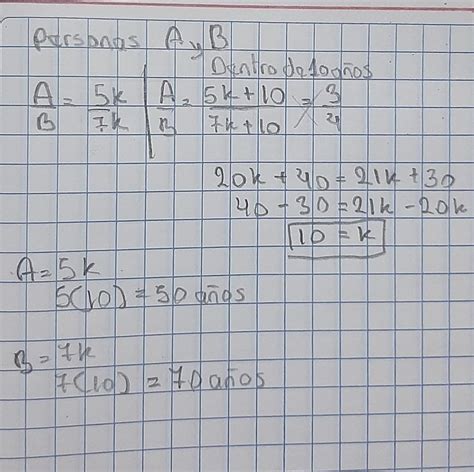 Personas A y B
Dentro de 10 años
A/B = 5k/7k | A/B = 5k+10/7k+10 = 3/4
20k + 40 = 21k + 30
40 - 30 = 21k - 20k
10 = k
A = 5k
5(10) = 50 años
B = 7k
7(10) = 70 años